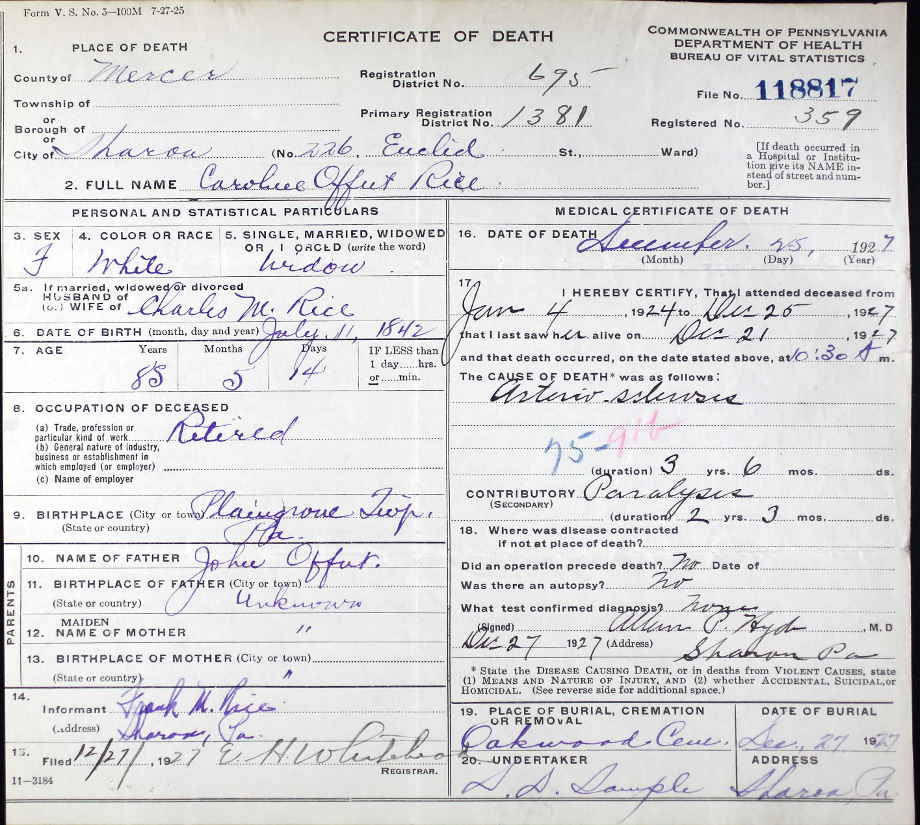 Form V. S. No. 5—100M 7-27-25
CERTIFICATE OF DEATH
COMMONWEALTH OF PENNSYLVANIA
DEPARTMENT OF HEALTH
BUREAU OF VITAL STATISTICS
1. PLACE OF DEATH
County of Mercer
Registration District No. 695
File No. 118817
Township of
or
Borough of
Primary Registration District No. 1381
Registered No. 359
or
City of Sharon (No. 226, Euclid St., Ward)
[If death occurred in a Hospital or Institution give its NAME instead of street and number.]
2. FULL NAME Caroline Offut Rice
PERSONAL AND STATISTICAL PARTICULARS
3. SEX F
4. COLOR OR RACE White
5. SINGLE, MARRIED, WIDOWED OR DIVORCED (write the word) Widow
5a. If married, widowed or divorced
HUSBAND of
(or) WIFE of Charles M. Rice
6. DATE OF BIRTH (month, day and year) July 11, 1842
7. AGE Years 85 Months 5 Days 14
IF LESS than 1 day......hrs. or......min.
8. OCCUPATION OF DECEASED
(a) Trade, profession or particular kind of work Retired
(b) General nature of industry, business or establishment in which employed (or employer)
(c) Name of employer
9. BIRTHPLACE (City or town) Plaingrove Twp.
(State or country) Pa.
PARENTS
10. NAME OF FATHER John Offut.
11. BIRTHPLACE OF FATHER (City or town)
(State or country) Unknown
12. MAIDEN NAME OF MOTHER "
13. BIRTHPLACE OF MOTHER (City or town)
(State or country) "
14. Informant Frank M. Rice
(Address) Sharon, Pa.
15. Filed 12/27/, 1927 E. H. REGISTRAR.
11—3184
MEDICAL CERTIFICATE OF DEATH
16. DATE OF DEATH December. 25, 1927
(Month) (Day) (Year)
17. I HEREBY CERTIFY, That I attended deceased from
Jan 4, 1924 to Dec 25, 1927
that I last saw her alive on Dec 21, 1927
and that death occurred, on the date stated above, at 10:30 A m.
The CAUSE OF DEATH* was as follows:
Arterio-sclerosis
75-91b
(duration) 3 yrs. 6 mos. ds.
CONTRIBUTORY Paralysis
(SECONDARY)
(duration) 2 yrs. 3 mos. ds.
18. Where was disease contracted
if not at place of death?
Did an operation precede death? No Date of
Was there an autopsy? No
What test confirmed diagnosis? None
(Signed) P. Hyde, M.D
Dec 27 1927 (Address) Sharon Pa
* State the DISEASE CAUSING DEATH, or in deaths from VIOLENT CAUSES, state
(1) MEANS AND NATURE OF INJURY, and (2) whether ACCIDENTAL, SUICIDAL, or
HOMICIDAL. (See reverse side for additional space.)
19. PLACE OF BURIAL, CREMATION OR REMOVAL Oakwood Cem.
DATE OF BURIAL Dec. 27, 1927
20. UNDERTAKER Sample
ADDRESS Sharon, Pa.